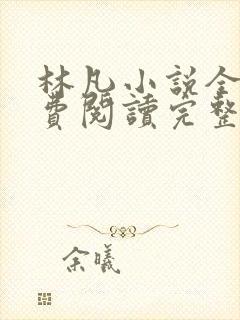 林凡小說全
費閱讀完整
余曦